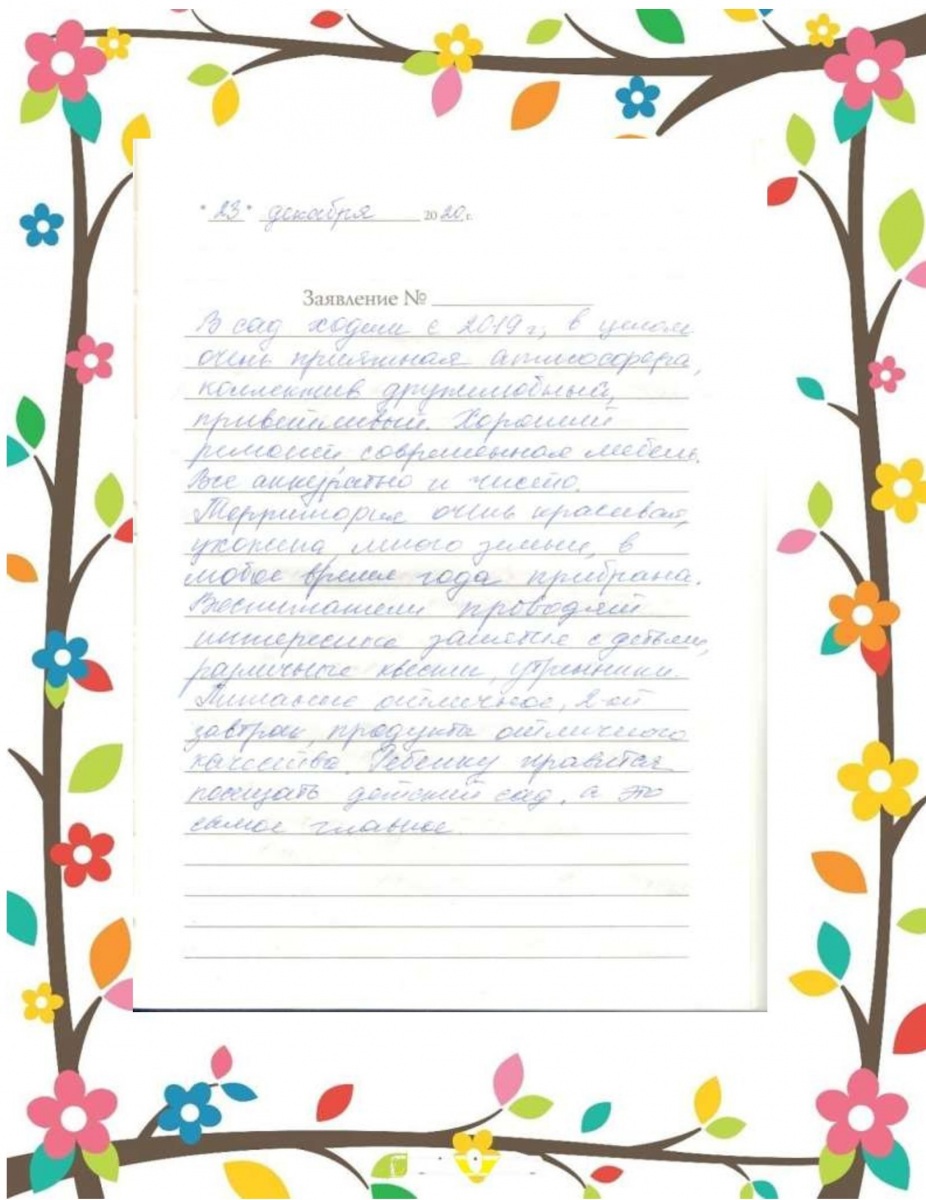 "23" декабря 2020 г.
Заявление №
В сад ходим с 2019 г, в целом
очень приятная атмосфера,
коллектив дружелюбный,
приветливый. Хороший
ремонт современная мебель.
Все аккуратно и чисто.
Территория очень красивая,
ухожена, много зелени, в
любое время года прибрана.
Воспитатели проводят
интересные занятия с детьми,
различные квесты, утренники.
Питание отличное, 2-ой
завтрак, продукты отличного
качества. Ребенку нравится
посещать детский сад, а это
самое главное.